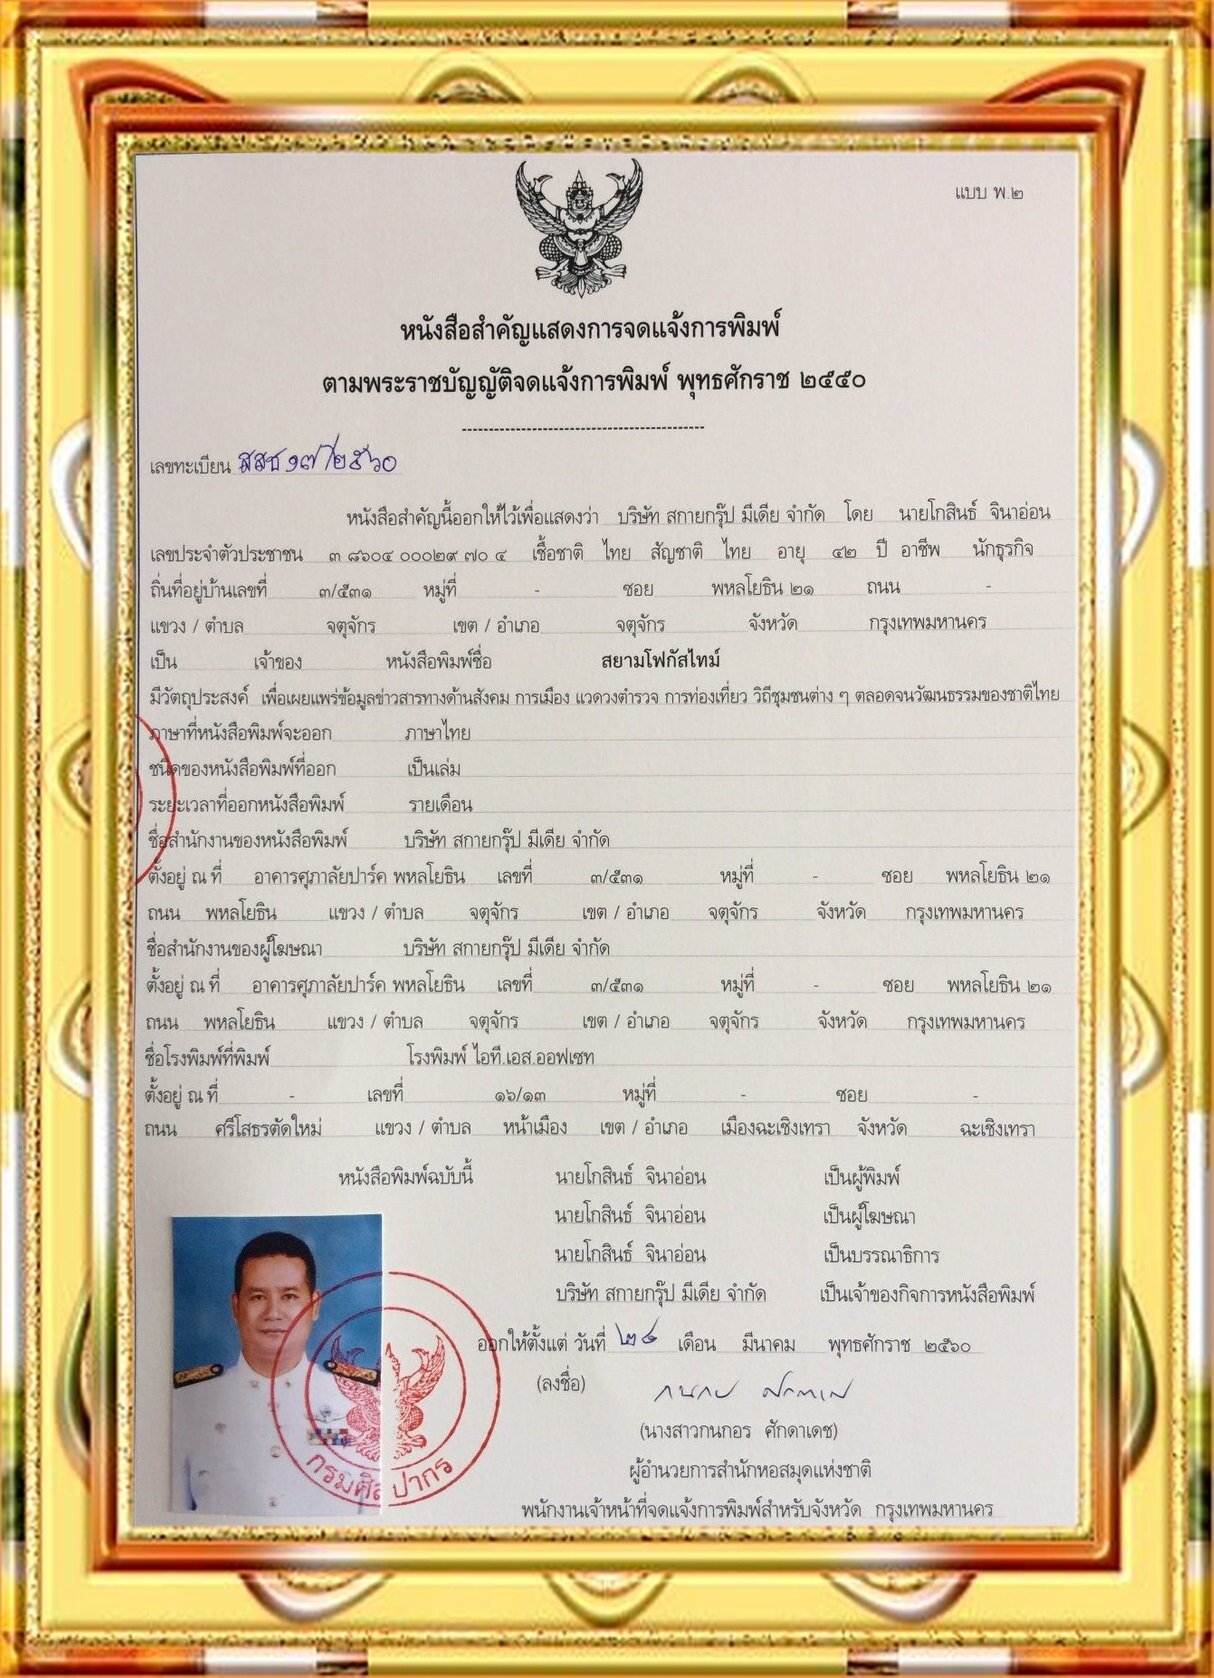 แบบ พ.๒
หนังสือสำคัญแสดงการจดแจ้งการพิมพ์
ตามพระราชบัญญัติจดแจ้งการพิมพ์ พุทธศักราช ๒๕๕๐
เลขทะเบียน สสช ๑๗/๒๕๖๐
หนังสือสำคัญนี้ออกให้ไว้เพื่อแสดงว่า บริษัท สกายกรุ๊ป มีเดีย จำกัด โดย นายโกสินธ์ จินาอ่อน
เลขประจำตัวประชาชน ๓ ๘๖๐๔ ๐๐๐๒๙ ๗๐ ๔ เชื้อชาติ ไทย สัญชาติ ไทย อายุ ๔๒ ปี อาชีพ นักธุรกิจ
ถิ่นที่อยู่บ้านเลขที่ ๓/๕๓๑ หมู่ที่ - ซอย พหลโยธิน ๒๑ ถนน -
แขวง / ตำบล จตุจักร เขต / อำเภอ จตุจักร จังหวัด กรุงเทพมหานคร
เป็น เจ้าของ หนังสือพิมพ์ชื่อ สยามโฟกัสไทม์
มีวัตถุประสงค์ เพื่อเผยแพร่ข้อมูลข่าวสารทางด้านสังคม การเมือง แวดวงตำรวจ การท่องเที่ยว วิถีชุมชนต่าง ๆ ตลอดจนวัฒนธรรมของชาติไทย
ภาษาที่หนังสือพิมพ์จะออก ภาษาไทย
ชนิดของหนังสือพิมพ์ที่ออก เป็นเล่ม
ระยะเวลาที่ออกหนังสือพิมพ์ รายเดือน
ชื่อสำนักงานของหนังสือพิมพ์ บริษัท สกายกรุ๊ป มีเดีย จำกัด
ตั้งอยู่ ณ ที่ อาคารศุภาลัยปาร์ค พหลโยธิน เลขที่ ๓/๕๓๑ หมู่ที่ - ซอย พหลโยธิน ๒๑
ถนน พหลโยธิน แขวง / ตำบล จตุจักร เขต / อำเภอ จตุจักร จังหวัด กรุงเทพมหานคร
ชื่อสำนักงานของผู้โฆษณา บริษัท สกายกรุ๊ป มีเดีย จำกัด
ตั้งอยู่ ณ ที่ อาคารศุภาลัยปาร์ค พหลโยธิน เลขที่ ๓/๕๓๑ หมู่ที่ - ซอย พหลโยธิน ๒๑
ถนน พหลโยธิน แขวง / ตำบล จตุจักร เขต / อำเภอ จตุจักร จังหวัด กรุงเทพมหานคร
ชื่อโรงพิมพ์ที่พิมพ์ โรงพิมพ์ ไอที.เอส.ออฟเซท
ตั้งอยู่ ณ ที่ - เลขที่ ๑๖/๑๓ หมู่ที่ - ซอย -
ถนน ศรีโสธรตัดใหม่ แขวง / ตำบล หน้าเมือง เขต / อำเภอ เมืองฉะเชิงเทรา จังหวัด ฉะเชิงเทรา
หนังสือพิมพ์ฉบับนี้ นายโกสินธ์ จินาอ่อน เป็นผู้พิมพ์
นายโกสินธ์ จินาอ่อน เป็นผู้โฆษณา
นายโกสินธ์ จินาอ่อน เป็นบรรณาธิการ
บริษัท สกายกรุ๊ป มีเดีย จำกัด เป็นเจ้าของกิจการหนังสือพิมพ์
ออกให้ตั้งแต่ วันที่ ๒๘ เดือน มีนาคม พุทธศักราช ๒๕๖๐
(ลงชื่อ)
(นางสาวกนกอร ศักดาเดช)
ผู้อำนวยการสำนักหอสมุดแห่งชาติ
พนักงานเจ้าหน้าที่จดแจ้งการพิมพ์สำหรับจังหวัด กรุงเทพมหานคร
กรมศิลปากร